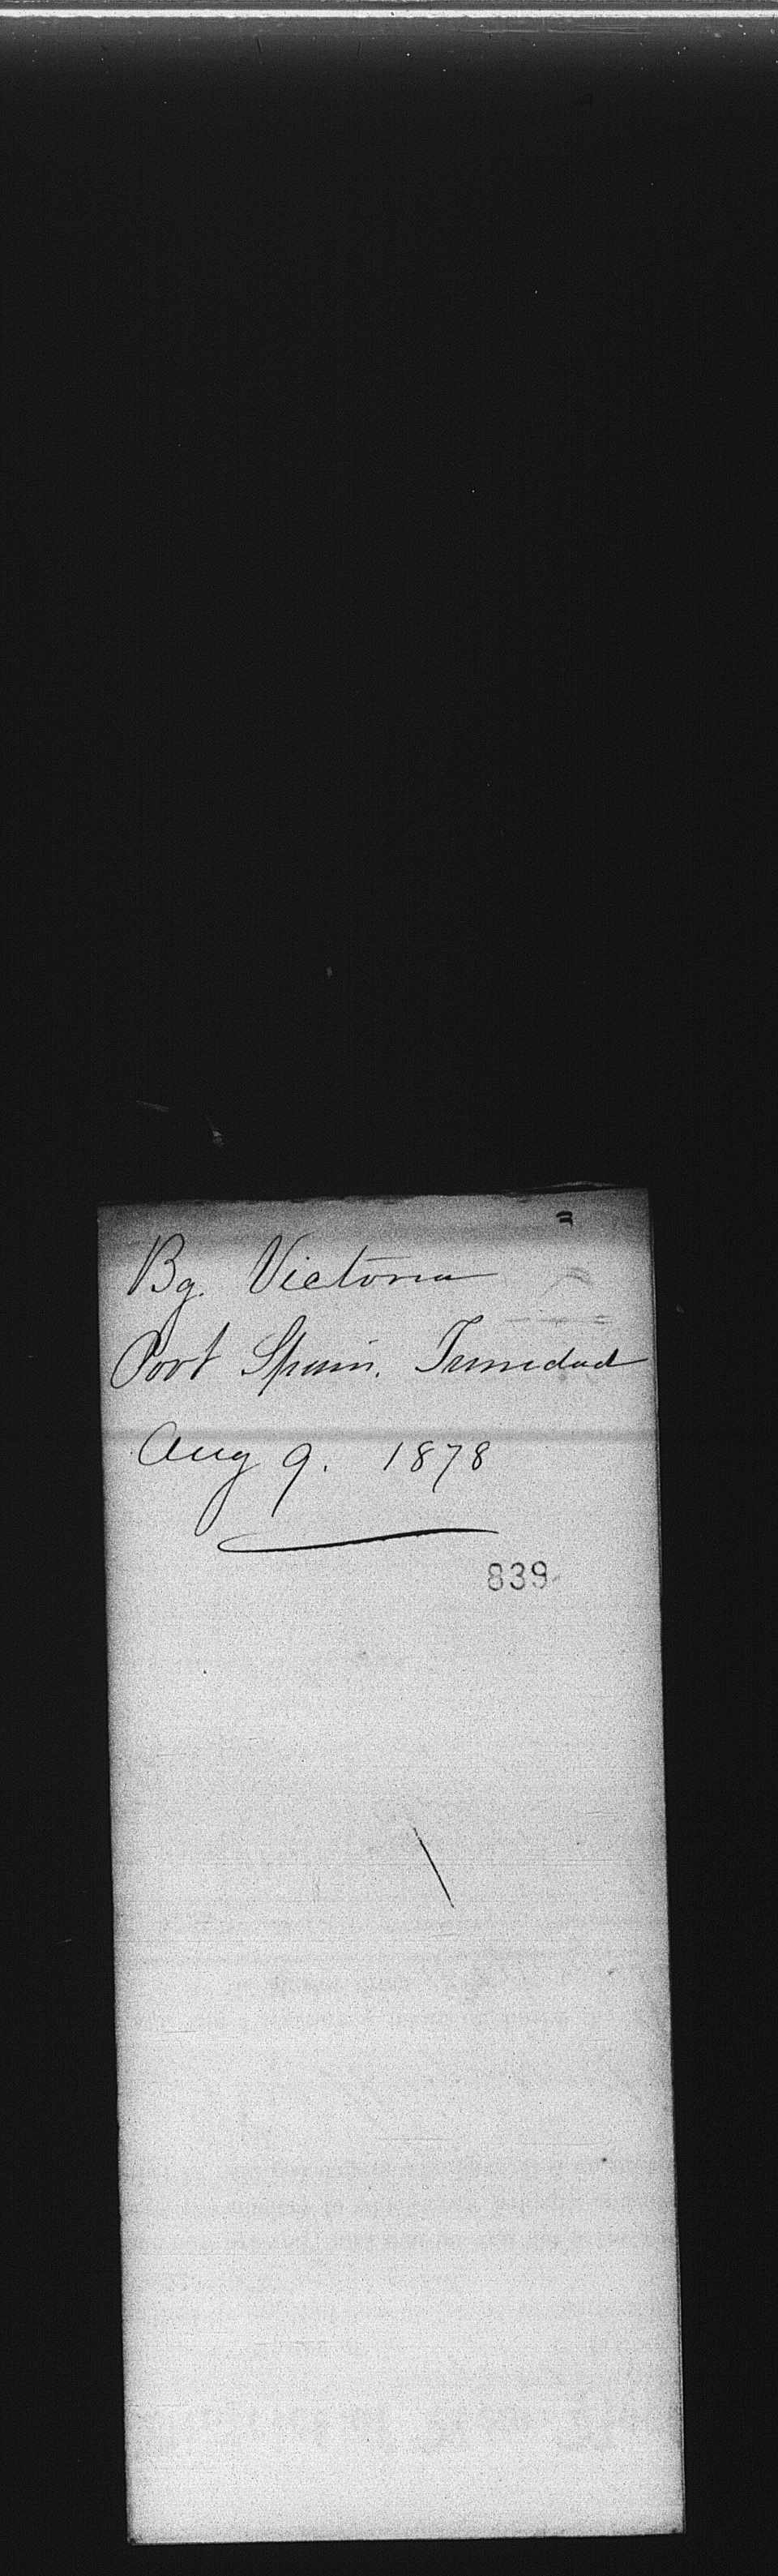 Bg. Victoria
Port Spain. Trinidad
Aug 9. 1878
839